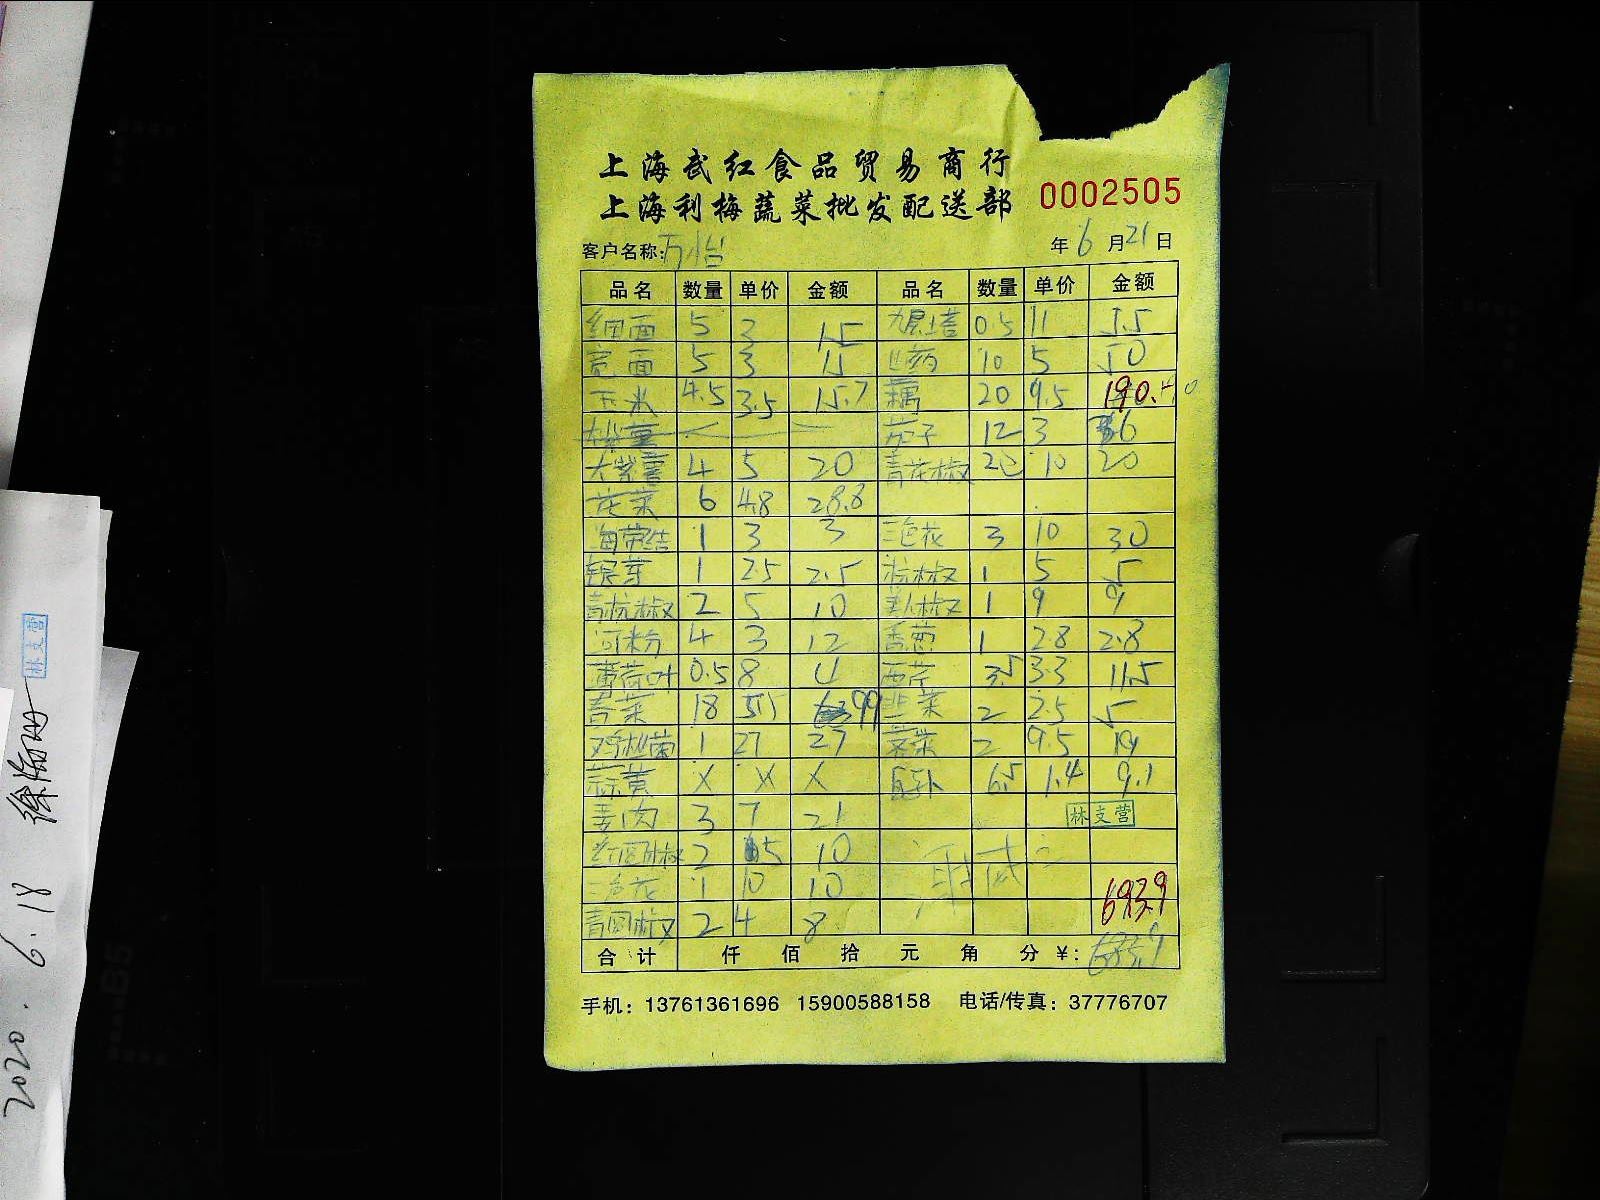 上海武红食品贸易商行
上海利梅蔬菜批发配送部 0002505
客户名称:万怡 年6月21日
品名 数量 单价 金额 品名 数量 单价 金额
细面 5 3 15 九层塔 0.5 11 5.5
宽面 5 3 15 山药 10 5 50
玉米 4.5 3.5 15.7 藕 20 9.5 190.
茄子 12 3 36
大紫薯 4 5 20 青花椒 10 20
花菜 6 4.8 28.8
海带结 1 3 3 三色花 3 10 30
银芽 1 2.5 2.5 杭椒 1 5 5
青杭椒 2 5 10 美人椒 1 9 9
河粉 4 3 12 香葱 1 2.8 2.8
薄荷叶 0.5 8 4 西芹 3.5 3.3 11.5
青菜 18 5.5 99 韭菜 2 2.5 5
鸡枞菌 1 27 27 2 9.5 19
蒜黄 X X X 6.5 1.4 9.1
姜肉 3 7 21 林支营
红圆椒 2 5 10
三色花 1 10 10 693.9
青圆椒 2 4 8
合计 仟 佰 拾 元 角 分 ¥: 683.9
手机: 13761361696 15900588158 电话/传真: 37776707
林支营
2020.6.18
B5